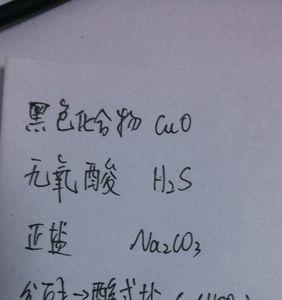 黑色化合物 CuO
无氧酸 H₂S
正盐 Na₂CO₃
酸式盐